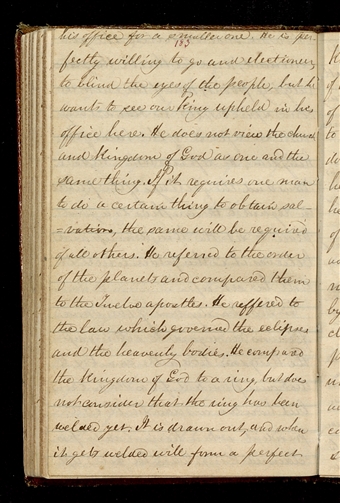 his office for a smaller one. He is per-
183
fectly willing to go and electioneer,
to blind the eyes of the people, but he
wants to see our King upheld in his
office here. He does not view the church
and Kingdom of God as one and the
same thing. If it requires one man
to do a certain thing to obtain sal-
-vation, the same will be required
of all others. He referred to the order
of the planets and compared them
to the Twelve apostles. He reffered to
the law which governed the eclipses
and the heavenly bodies. He compared
the Kingdom of God to a ring, but does
not consider that the ring has been
welded yet. It is drawn out, and when
it gets welded will form a perfect